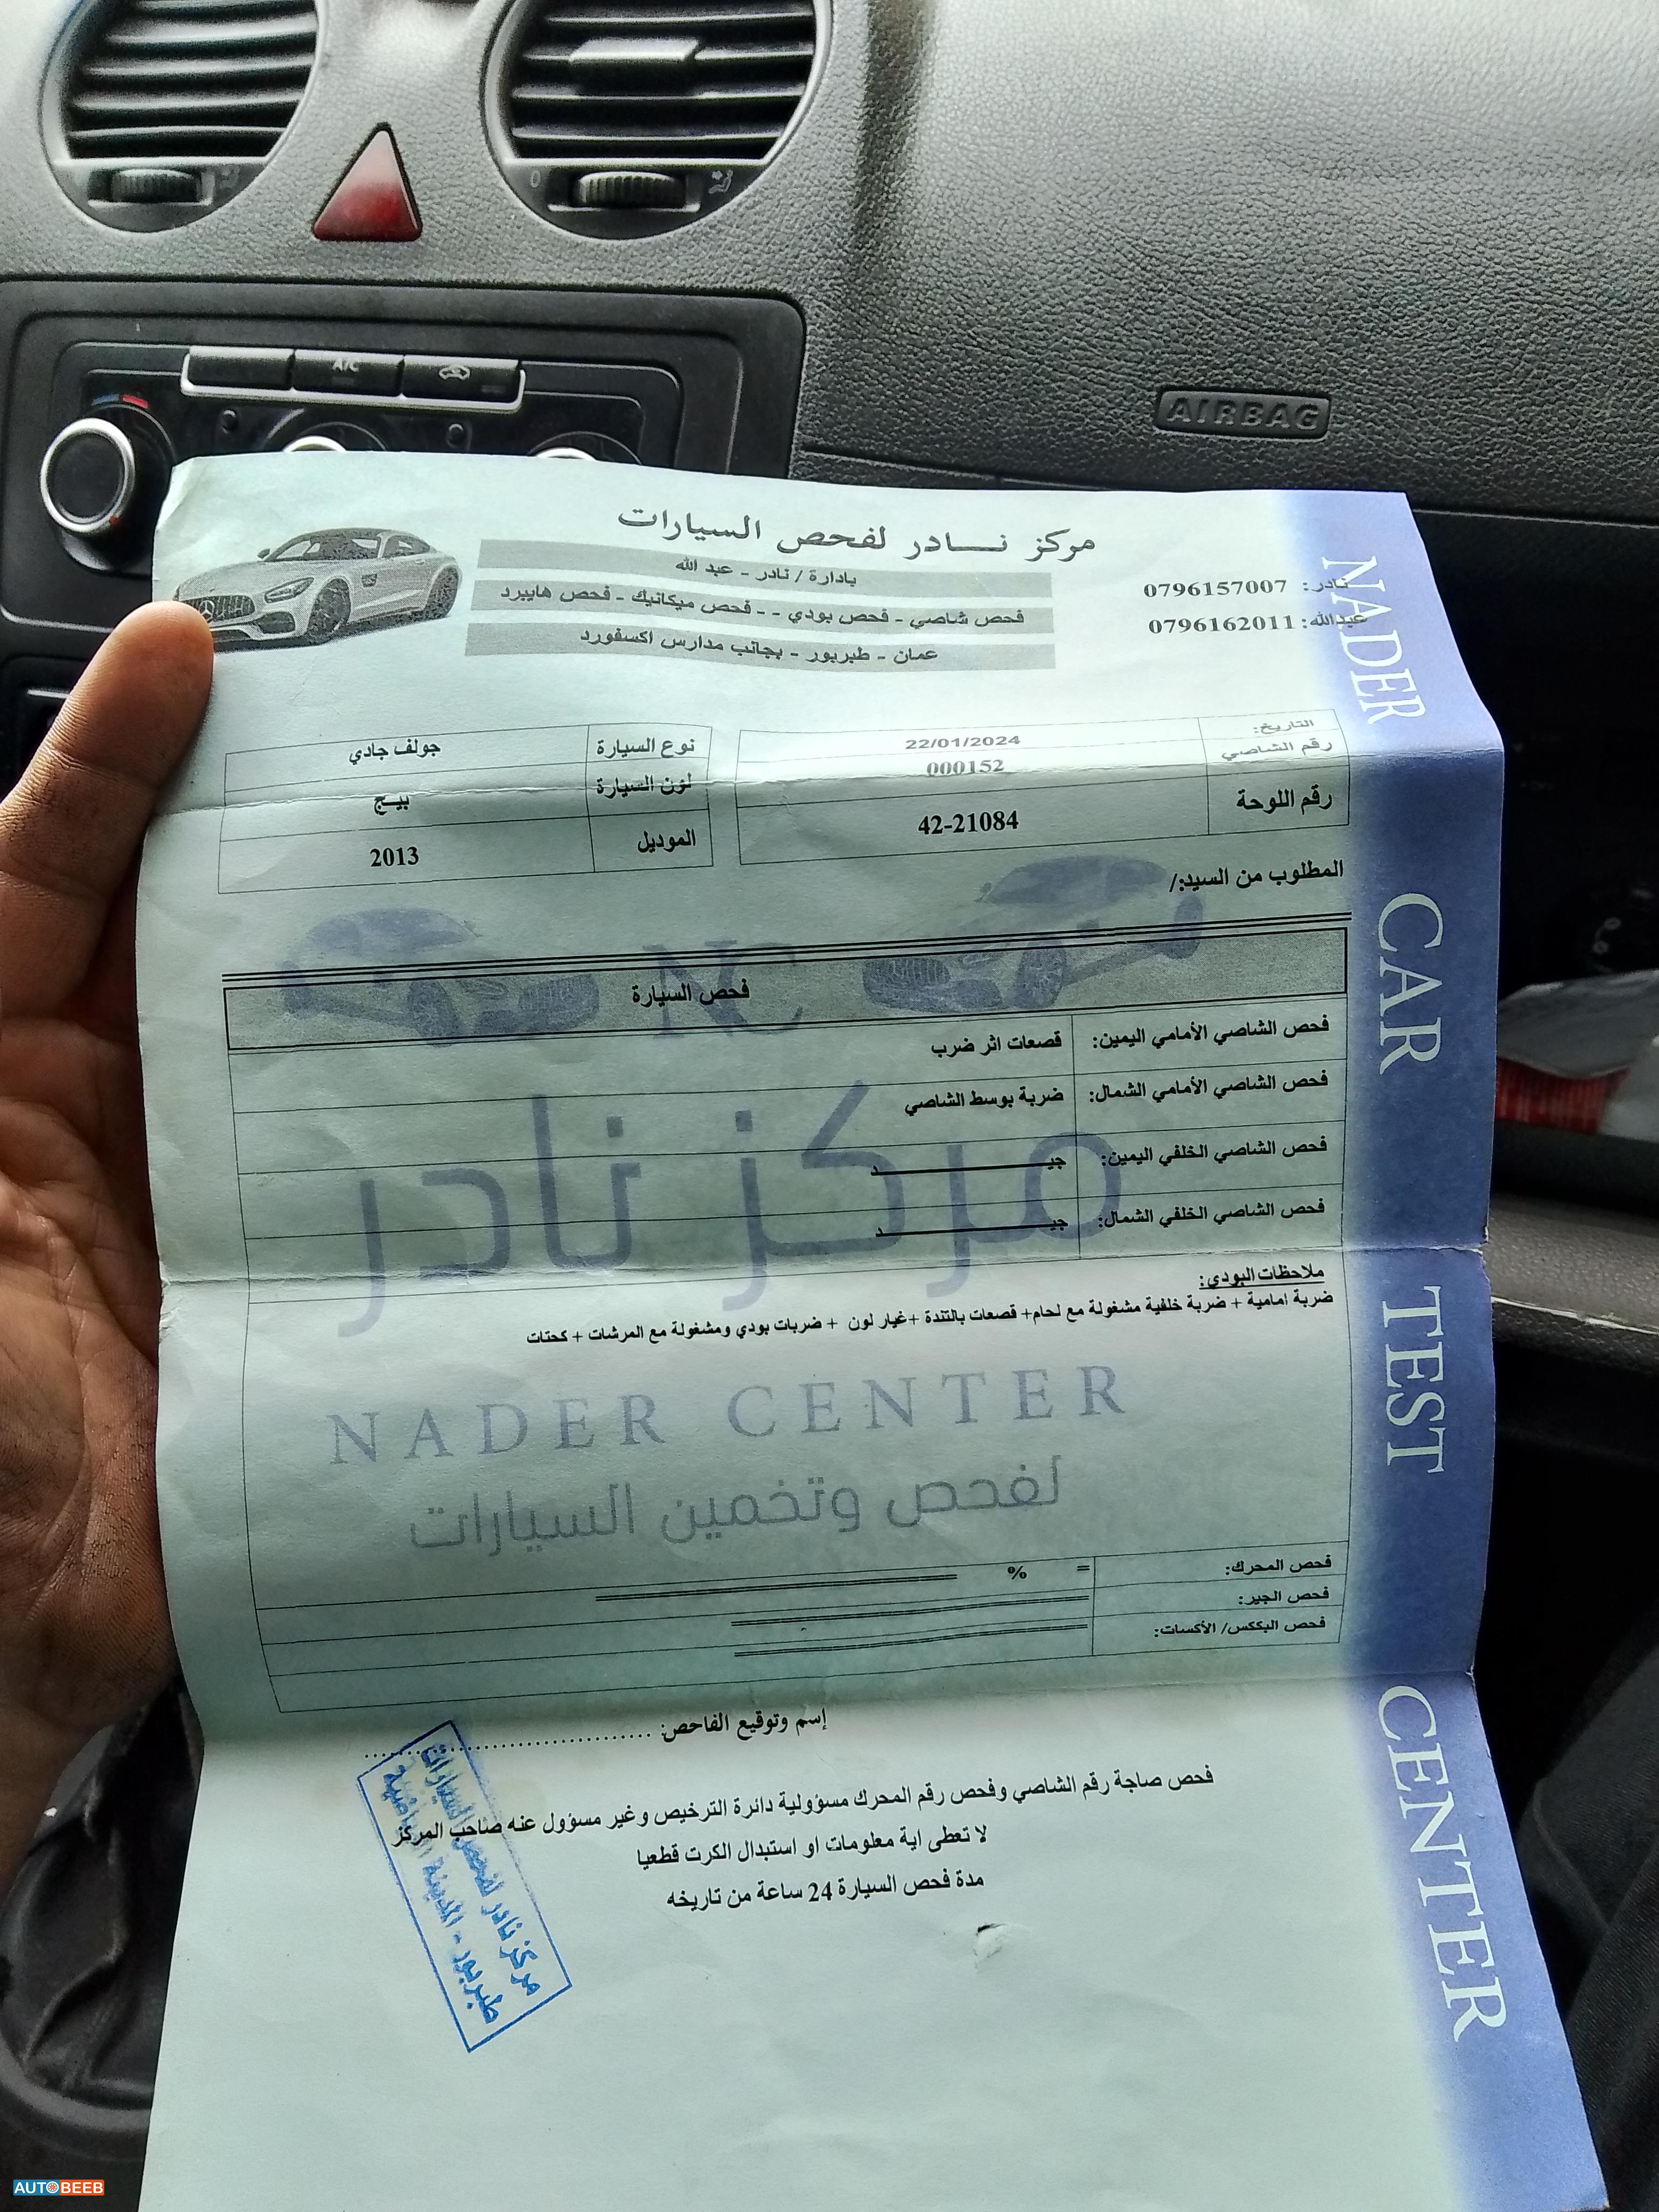 A/C
AIRBAG
مركز نـــــادر لفحص السيارات
بادارة / نادر - عبد الله
فحص شاصي - فحص بودي - - فحص ميكانيك - فحص هايبرد
عمان - طبربور - بجانب مدارس اكسفورد
نادر: 0796157007
عبدالله: 0796162011
NADER CAR TEST CENTER
التاريخ: 22/01/2024
رقم الشاصي 000152
رقم اللوحة 42-21084
نوع السيارة جولف جادي
لون السيارة بيـــج
الموديل 2013
المطلوب من السيد:/
NC
فحص السيارة
فحص الشاصي الأمامي اليمين: قصعات اثر ضرب
فحص الشاصي الأمامي الشمال: ضربة بوسط الشاصي
فحص الشاصي الخلفي اليمين: جيـــــــــــــد
فحص الشاصي الخلفي الشمال: جيـــــــــــــد
مركز نادر
ملاحظات البودي:
ضربة امامية + ضربة خلفية مشغولة مع لحام+ قصعات بالتندة +غيار لون + ضربات بودي ومشغولة مع المرشات + كحتات
NADER CENTER
لفحص وتخمين السيارات
فحص المحرك: = %
فحص الجير:
فحص البككس/ الأكسات:
إسم وتوقيع الفاحص: ..................................
فحص صاجة رقم الشاصي وفحص رقم المحرك مسؤولية دائرة الترخيص وغير مسؤول عنه صاحب المركز
لا تعطى اية معلومات او استبدال الكرت قطعيا
مدة فحص السيارة 24 ساعة من تاريخه
مركز نادر لفحص السيارات
طبربور - المدينة
AUTOBEEB